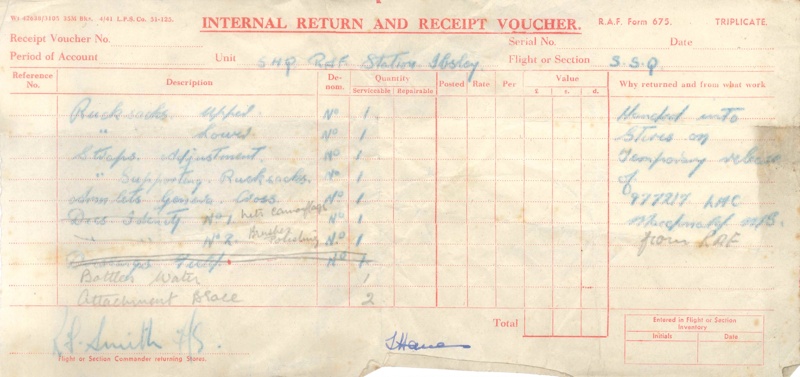 Wt 42630/3105 325M Bks. 4/41 L.P.S. Co. 51-122.
INTERNAL RETURN AND RECEIPT VOUCHER.
R.A.F. Form 675. TRIPLICATE.
Receipt Voucher No. Serial No. Date
Period of Account Unit SHQ RAF Station Ibsley Flight or Section S.S.Q.
Reference No. Description De-nom. Quantity Posted Rate Per Value Why returned and from what work
Serviceable Repairable £ s. d.
Rucksacks Upper No 1 Handed into
" Lower No 1 Stores on
Straps Adjustment No 1 temporary release
" Supporting Rucksacks No 1 of
Armlets Geneva Cross No 1 977217 LAC
Discs Identity No 1. Nets Camouflage No 1
" No 2. Brushes Polishing No 1 from RAF
No 1
Bottles Water 1
Attachment Brace 2
Total
Entered in Flight or Section Inventory
Initials Date
Smith F/S
Flight or Section Commander returning Stores.